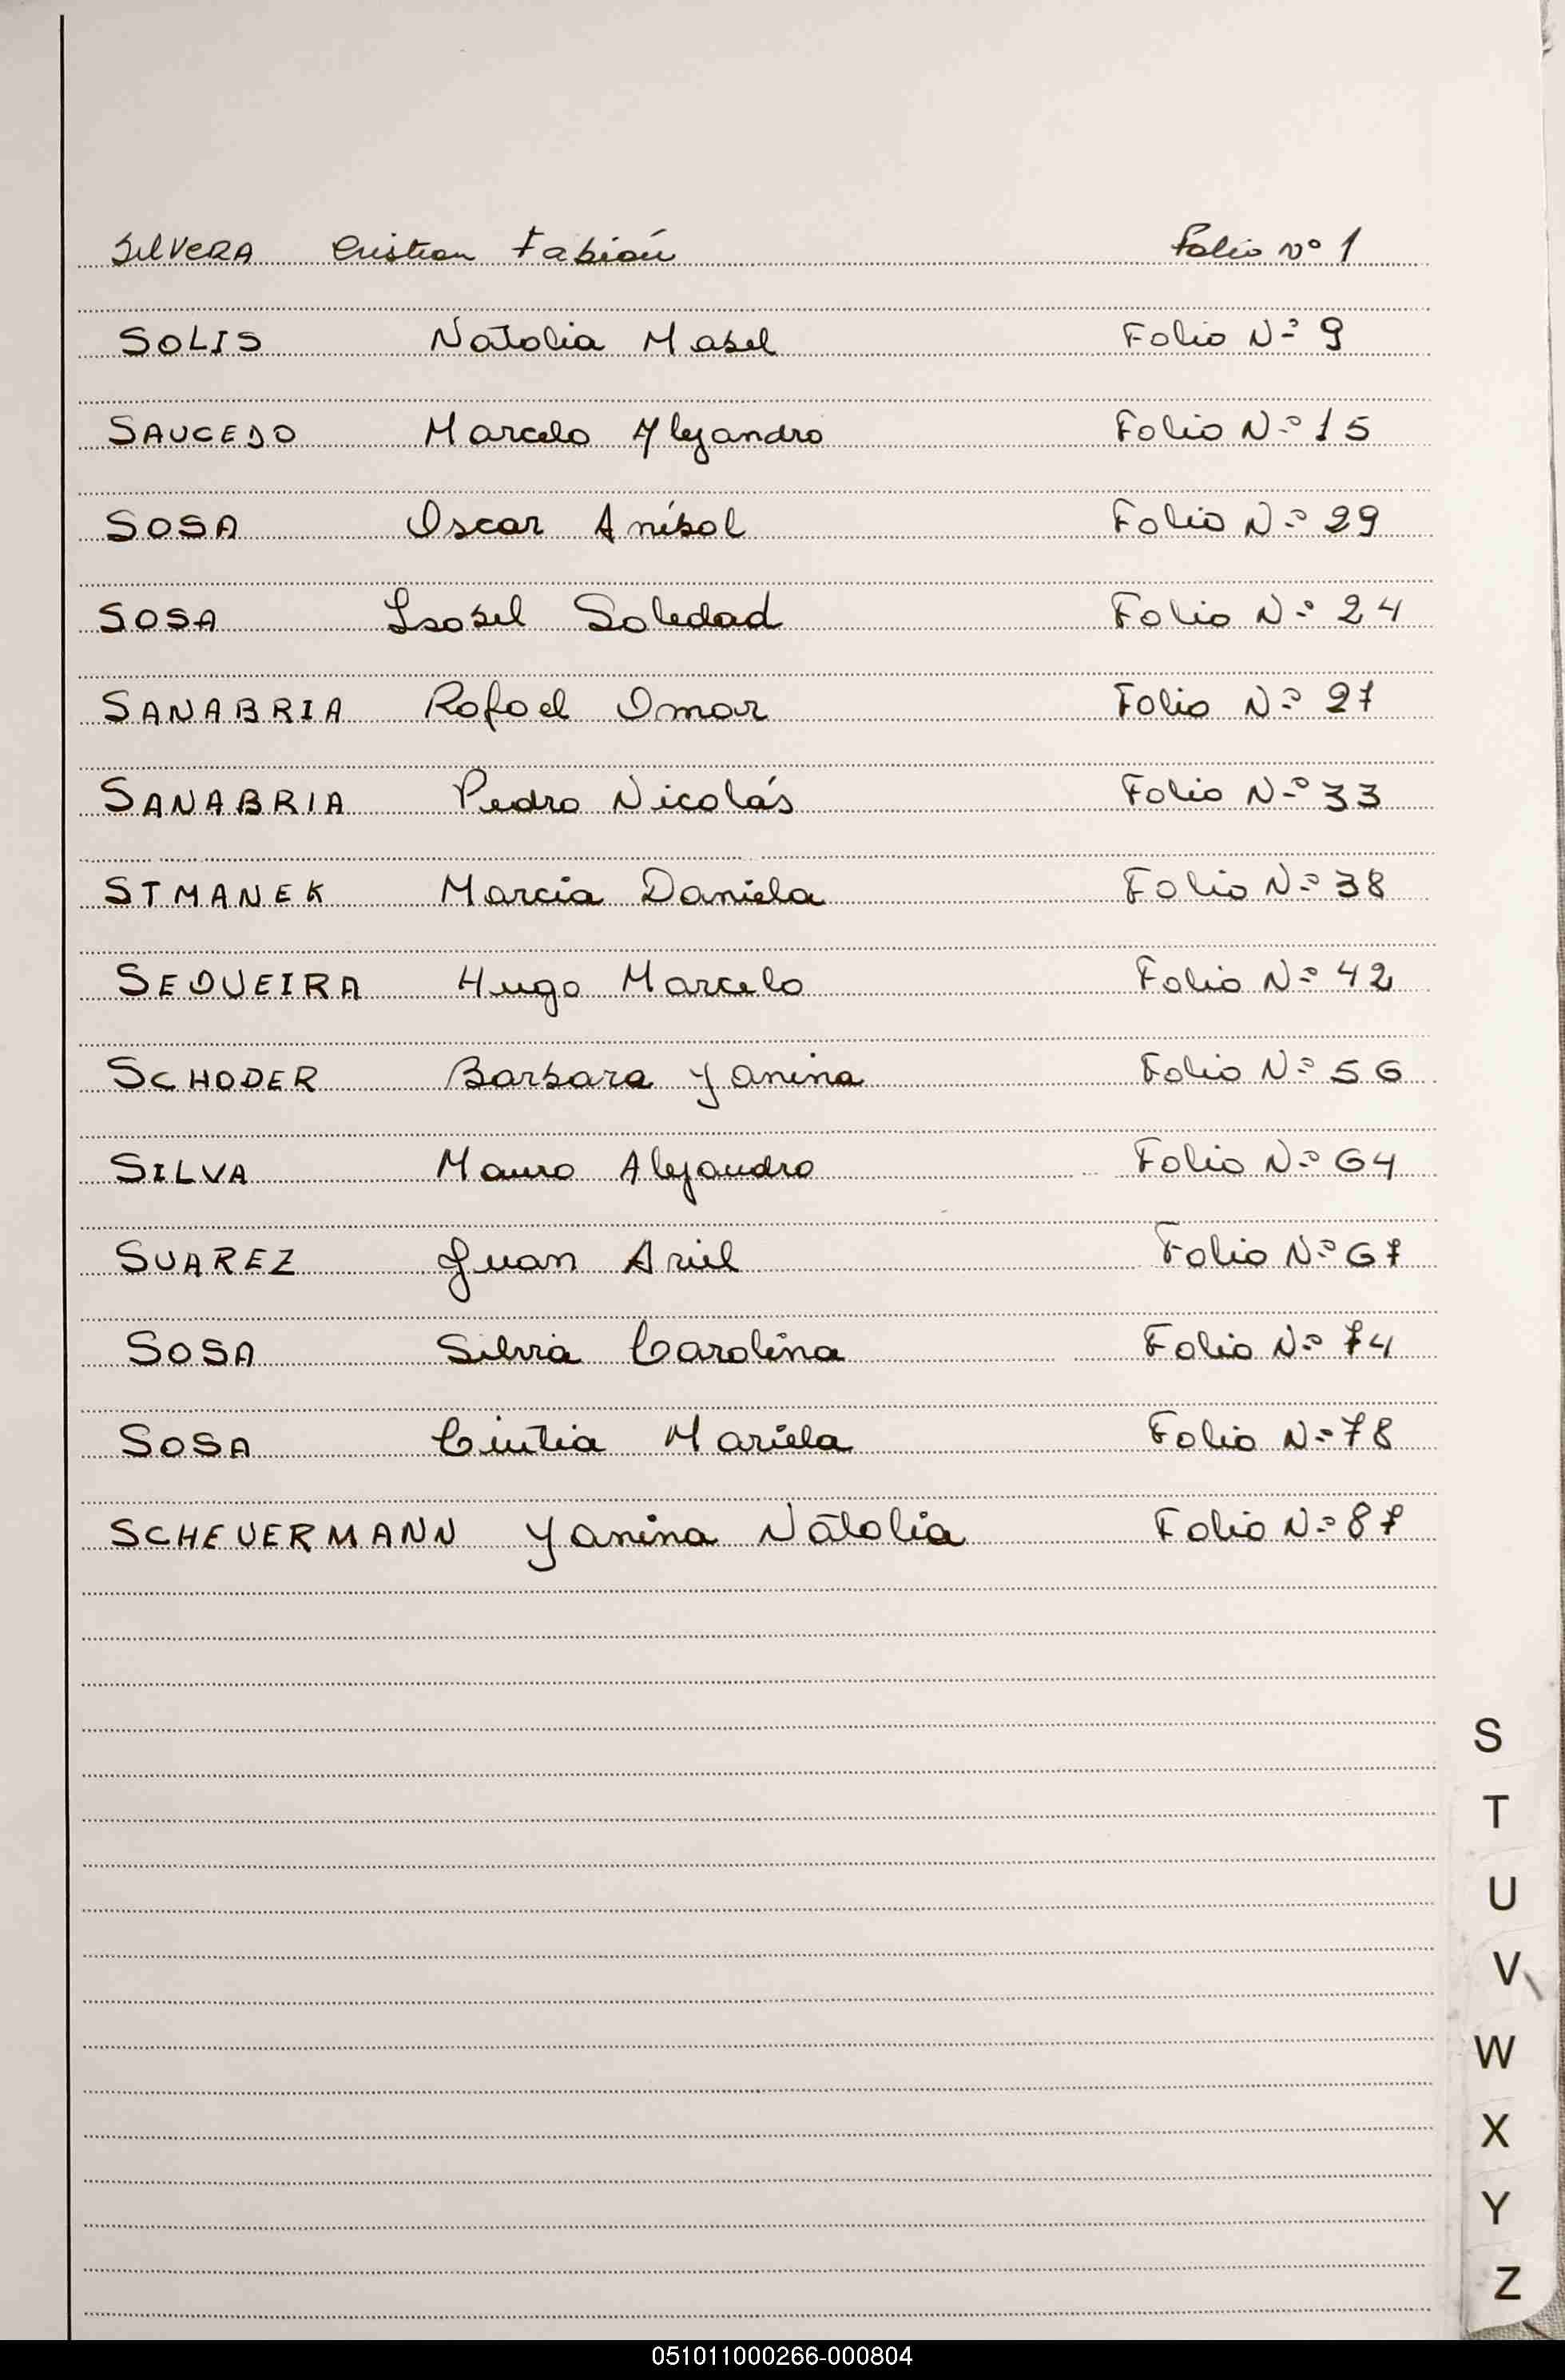 SILVERA Cristian Fabián Folio Nº 1
SOLIS Natalia Mabel Folio Nº 9
SAUCEDO Marcelo Alejandro Folio Nº 15
SOSA Oscar Aníbal Folio Nº 29
SOSA Isabel Soledad Folio Nº 24
SANABRIA Rafael Omar Folio Nº 27
SANABRIA Pedro Nicolás Folio Nº 33
STMANEK Marcia Daniela Folio Nº 38
SEQUEIRA Hugo Marcelo Folio Nº 42
SCHODER Barbara Yanina Folio Nº 56
SILVA Mauro Alejandro Folio Nº 64
SUAREZ Juan Ariel Folio Nº 67
SOSA Silvia Carolina Folio Nº 74
SOSA Cintia Mariela Folio Nº 78
SCHEUERMANN Yanina Natalia Folio Nº 87
S
T
U
V
W
X
Y
Z
051011000266-000804